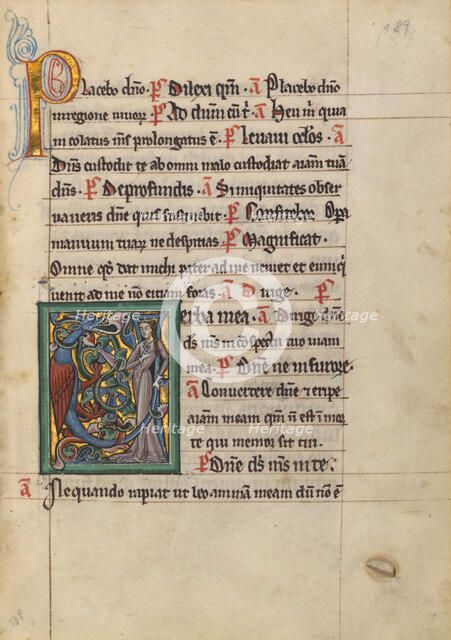 189
Placebo dño. Ps Dilexi qm̄. A Placebo dño
in regione vivor. Ps Ad dnm cū t̄. A Heu m̄ quia
incolatus m̄s prolongatus ē. Ps Levavi oc̄los. A
Dñs custodit te ab omni malo custodiat animam tuā
dñs. Ps De profundis. A Si iniquitates obser
vaveris dñe quis sustinebit. Ps Confitebor. Opa
manuum tuar ne despicias. Ps Magnificat.
Omne qd dat michi pater ad me veniet et eum q
venit ad me nō eiciam foras. A Dirige. Ps
Verba mea. A Dirige dñe
ds m̄s in cōspectu tuo viam
mea. Ps Dñe ne in furore.
A Convertere dñe et eripe
aiam meam qm̄ n̄ est ī mor
te qui memor sit tui.
Ps Dñe ds m̄s in te.
A Nequando rapiat ut leo animā meam dū nō ē
Heritage
Heritage
Heritage
Heritage
Heritage
Heritage